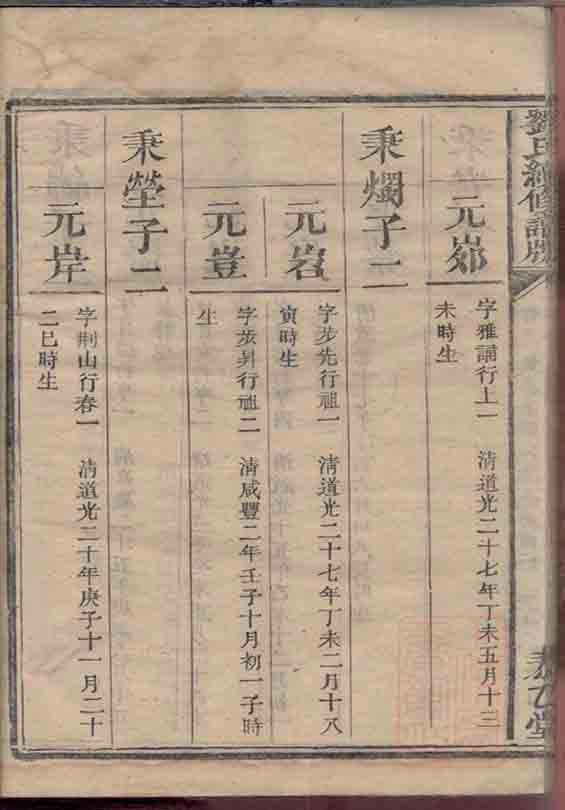 劉氏續修譜牒
元郊
字雅誦行上一 清道光二十七年丁未五月十三
未時生
秉燭子二
元岩
字步先行祖一 清道光二十七年丁未二月十八
寅時生
元豈
字步昇行祖二 清咸豐二年壬子十月初一子時
生
秉瑩子二
元岸
字荆山行春一 清道光二十年庚子十一月二十
二巳時生